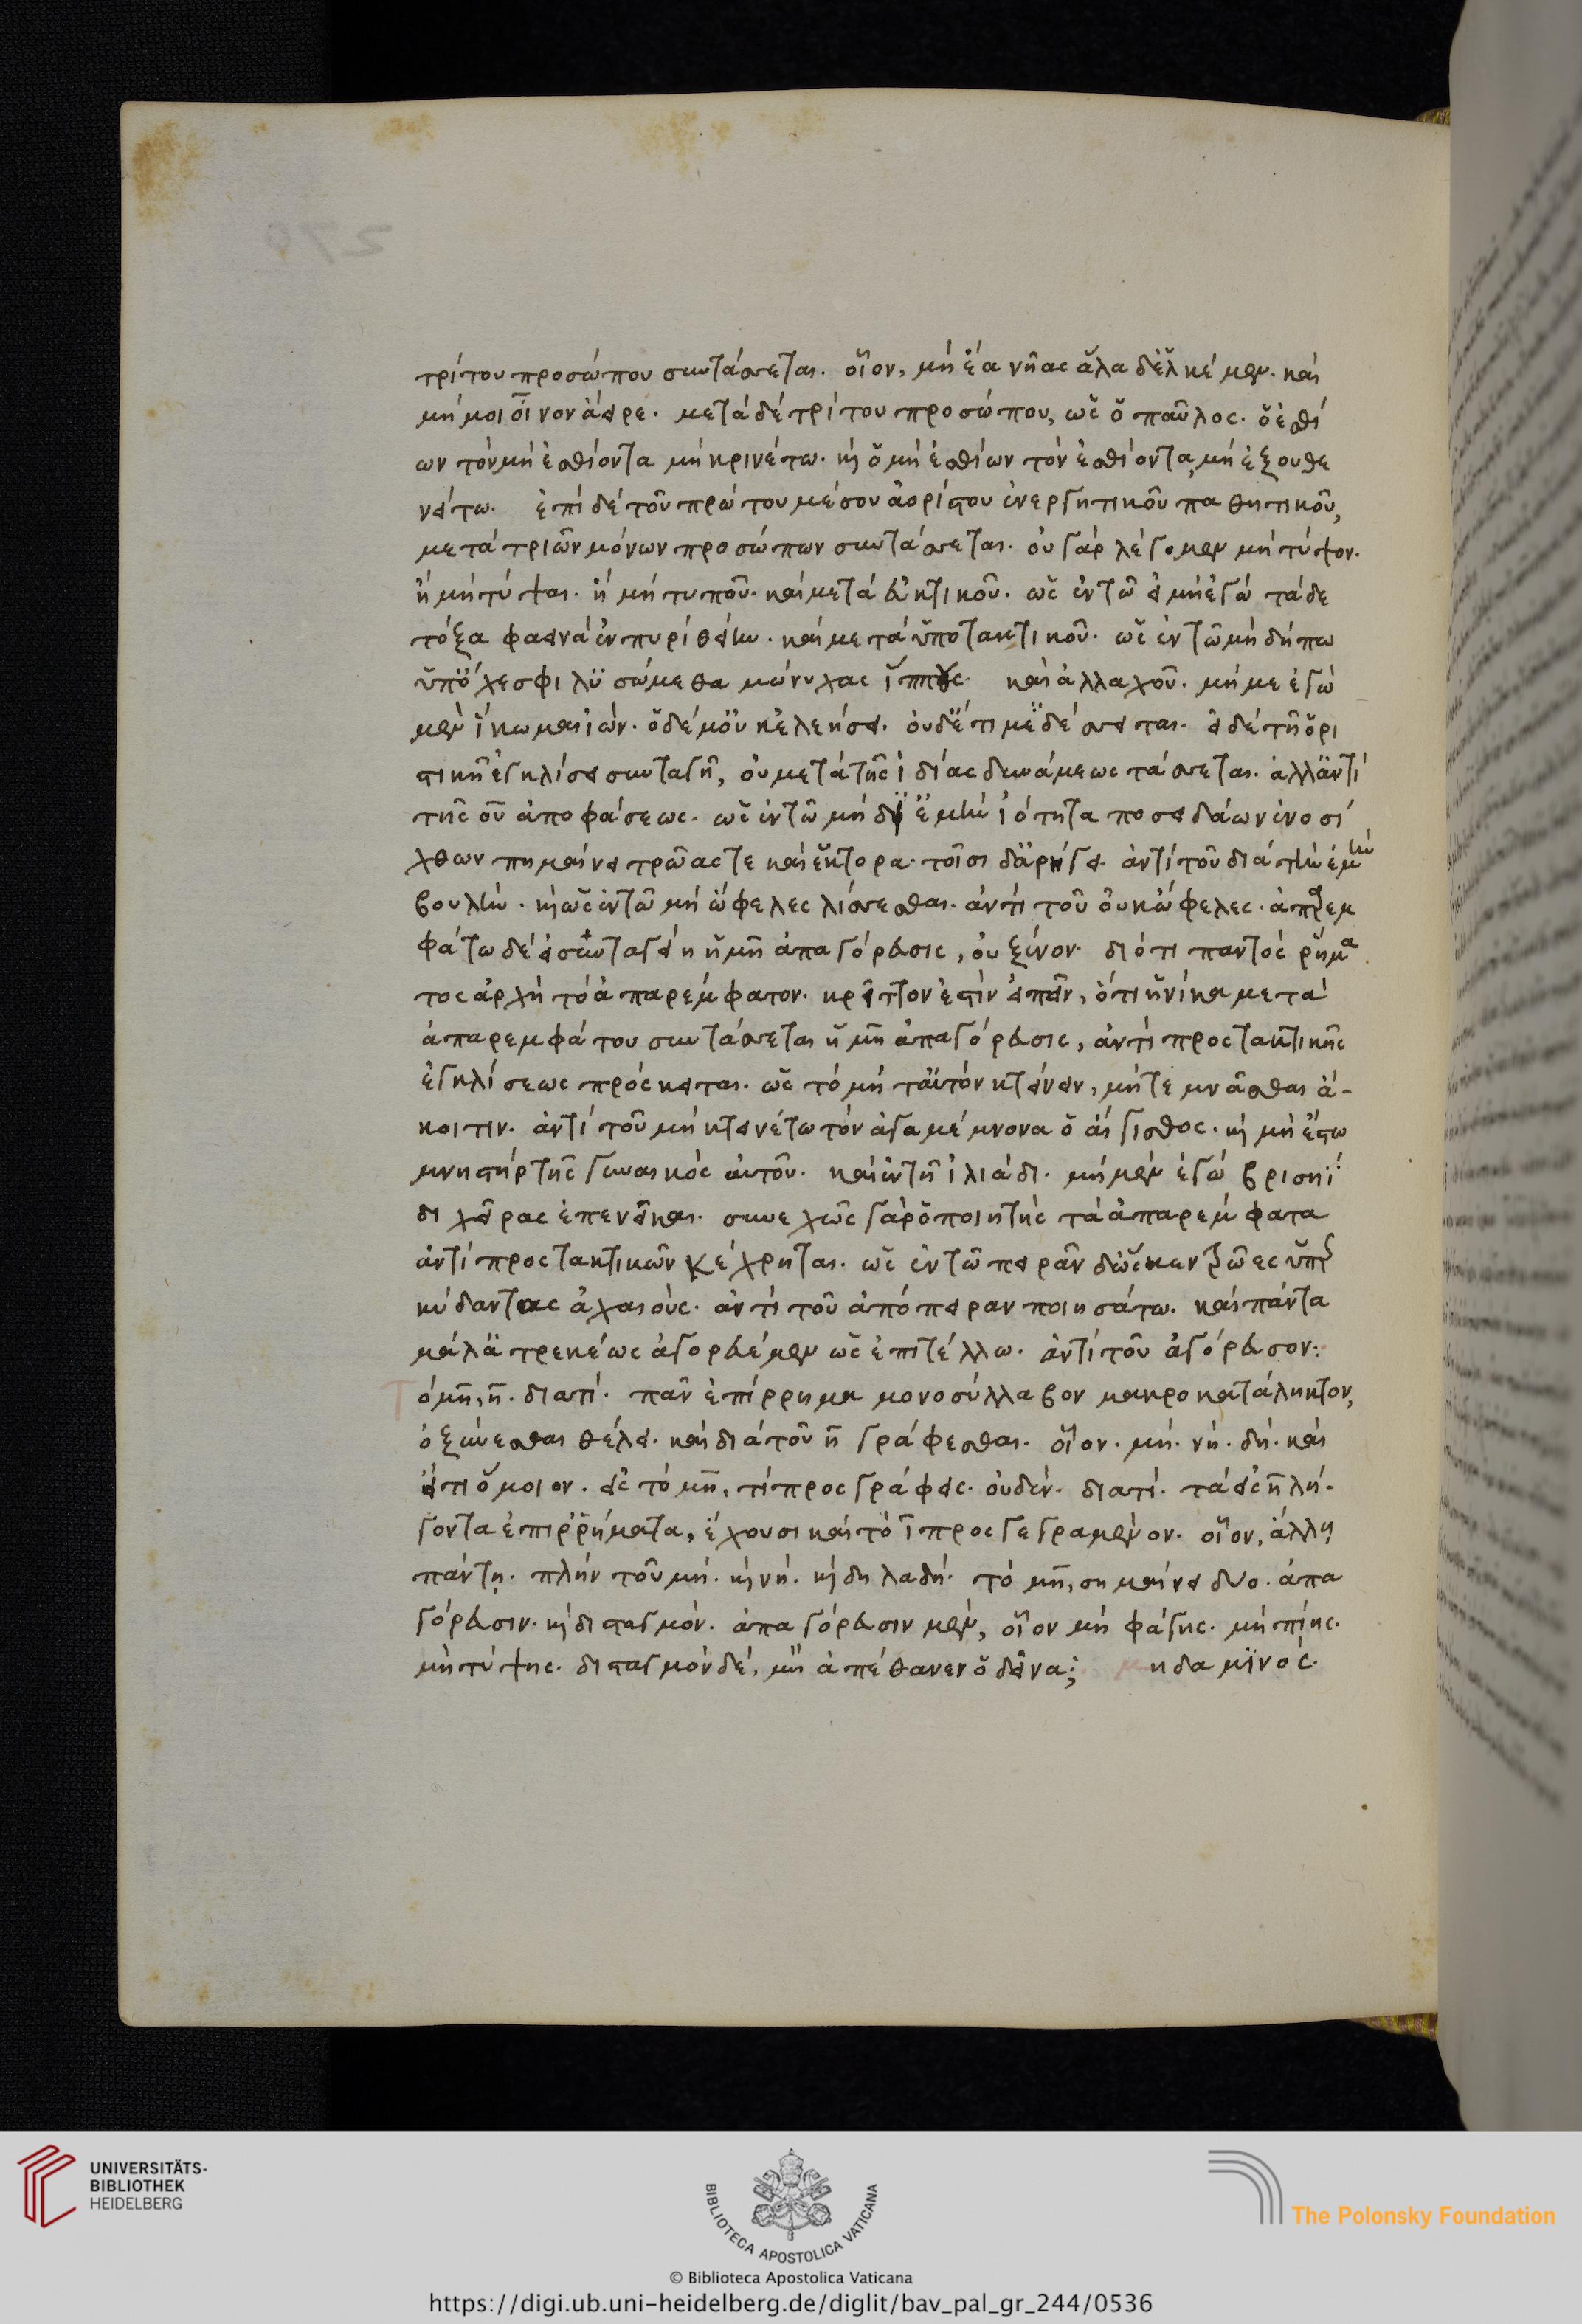 τρίτου προσώπου συντάσσεται. οἷον, μὴ ἔα νῆας ἅλα δ' ἑλκέμεν. καὶ
μή μοι οἶνον ἄειρε. μετὰ δὲ τρίτου προσώπου, ὡς ὁ παῦλος. ὁ ἐσθί
ων τὸν μὴ ἐσθίοντα μὴ κρινέτω. κ ὁ μὴ ἐσθίων τὸν ἐσθίοντα, μὴ ἐξουθε
νείτω. ἐπὶ δὲ τοῦ πρώτου μέσου ἀορίστου ἐνεργητικοῦ παθητικοῦ,
μετὰ τριῶν μόνων προσώπων συντάσσεται. οὐ γὰρ λέγομεν μὴ τύψον.
ἢ μὴ τύψαι. ἢ μὴ τυποῦ. καὶ μετὰ εὐκτικοῦ. ὡς ἐν τῶ εἰ μὴ ἐγὼ τάδε
τόξα φαεινὰ ἐν πυρὶ θείην. καὶ μετὰ ὑποτακτικοῦ. ὡς ἐν τῶ μὴ δήπω
ὑπ' ὄχεσφι λυσώμεθα μώνυχας ἵππους. καὶ ἀλλαχοῦ. μή με ἐγὼ
μὲν ἵκωμαι ἰών. ὁ δέ μ' οὐκ ἐλεήσει. οὐδέ τί μ' αἰδέσσεται. εἰ δὲ τῆ ὁρι
στικῆ ἐγκλίσει συνταγῆ, οὐ μετὰ τῆς ἰδίας δυνάμεως τάσσεται. ἀλλ' ἀντὶ
τῆς οὒ ἀποφάσεως. ὡς ἐν τῶ μὴ δι' ἐμὴν ἰότητα ποσειδάων ἐνοσί
χθων πημαίνει τρῶας τε καὶ ἕκτορα. τοῖσι δ' ἀρήγει. ἀντὶ τοῦ διὰ τὴν ἐμὴν
βουλήν. κ ὡς ἐν τῶ μὴ ὤφελες λίσσεσθαι. ἀντὶ τοῦ οὐκ ὤφελες. ἀπαρεμ
φάτω δὲ εἰ συνταγείη ἡ μὴ ἀπαγόρευσις, οὐ ξένον. διότι παντὸς ῥήμα
τος ἀρχὴ τὸ ἀπαρέμφατον. κρεῖττον ἐστὶν εἰπεῖν, ὅτι ἡνίκα μετὰ
ἀπαρεμφάτου συντάσσεται ἡ μὴ ἀπαγόρευσις, ἀντὶ προστακτικῆς
ἐγκλίσεως πρόσκειται. ὡς τὸ μήτ' αὐτὸν κτείνειν, μήτε μνᾶσθαι ἄ-
κοιτιν. ἀντὶ τοῦ μὴ κτεινέτω τὸν ἀγαμέμνονα ὁ αἴγισθος. κ μὴ ἔστω
μνηστὴρ τῆς γυναικὸς αὐτοῦ. καὶ ἐν τῆ ἰλιάδι. μὴ μὲν ἐγὼ βρισηί
δι χεῖρας ἐπενεῖκαι. συνεχῶς γὰρ ὁ ποιητὴς τὰ ἀπαρέμφατα
ἀντὶ προστακτικῶν κέχρηται. ὡς ἐν τῶ πειρᾶν δ' ὥς κεν τρῶες ὑπερ
κύδαντας ἀχαιούς. ἀντὶ τοῦ ἀπόπειραν ποιησάτω. καὶ πάντα
μάλ' ἀτρεκέως ἀγορευέμεν ὡς ἐπιτέλλω. ἀντὶ τοῦ ἀγόρευσον:
ὁ μὴ, η. διατί. πᾶν ἐπίρρημα μονοσύλλαβον μακροκατάληκτον,
ὀξύνεσθαι θέλει. καὶ διὰ τοῦ η γράφεσθαι. οἷον. μή. νή. δή. καὶ
εἴ τι ὅμοιον. εἰς τὸ μη, τί προσγράφεις. οὐδέν. διατί. τὰ εἰς η λή-
γοντα ἐπιρρήματα, ἔχουσι καὶ τὸ ι προσγεγραμμένον. οἷον, ἄλλη
πάντη. πλὴν τοῦ μή. κ νή. κ δηλαδή. τὸ μη, σημαίνει δύο. ἀπα
γόρευσιν. κ δισταγμόν. ἀπαγόρευσιν μὲν, οἷον μὴ φάγης. μὴ πίης.
μὴ τύψης. δισταγμὸν δὲ, μὴ ἀπέθανεν ὁ δεῖνα; μηδαμινός.
UNIVERSITÄTS-
BIBLIOTHEK
HEIDELBERG
BIBLIOTECA APOSTOLICA VATICANA
The Polonsky Foundation
© Biblioteca Apostolica Vaticana
https://digi.ub.uni-heidelberg.de/diglit/bav_pal_gr_244/0536